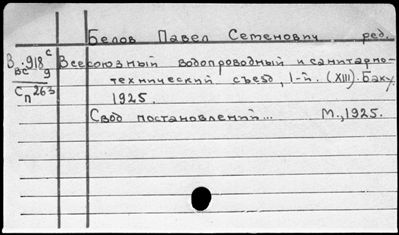 Белов Павел Семенович ред.
В 918 с Всесоюзный водопроводный и санитарно-
вс 9 технический съезд, I-й. (XIII). Баку.
Сп 263 1925.
Свод постановлений... М., 1925.